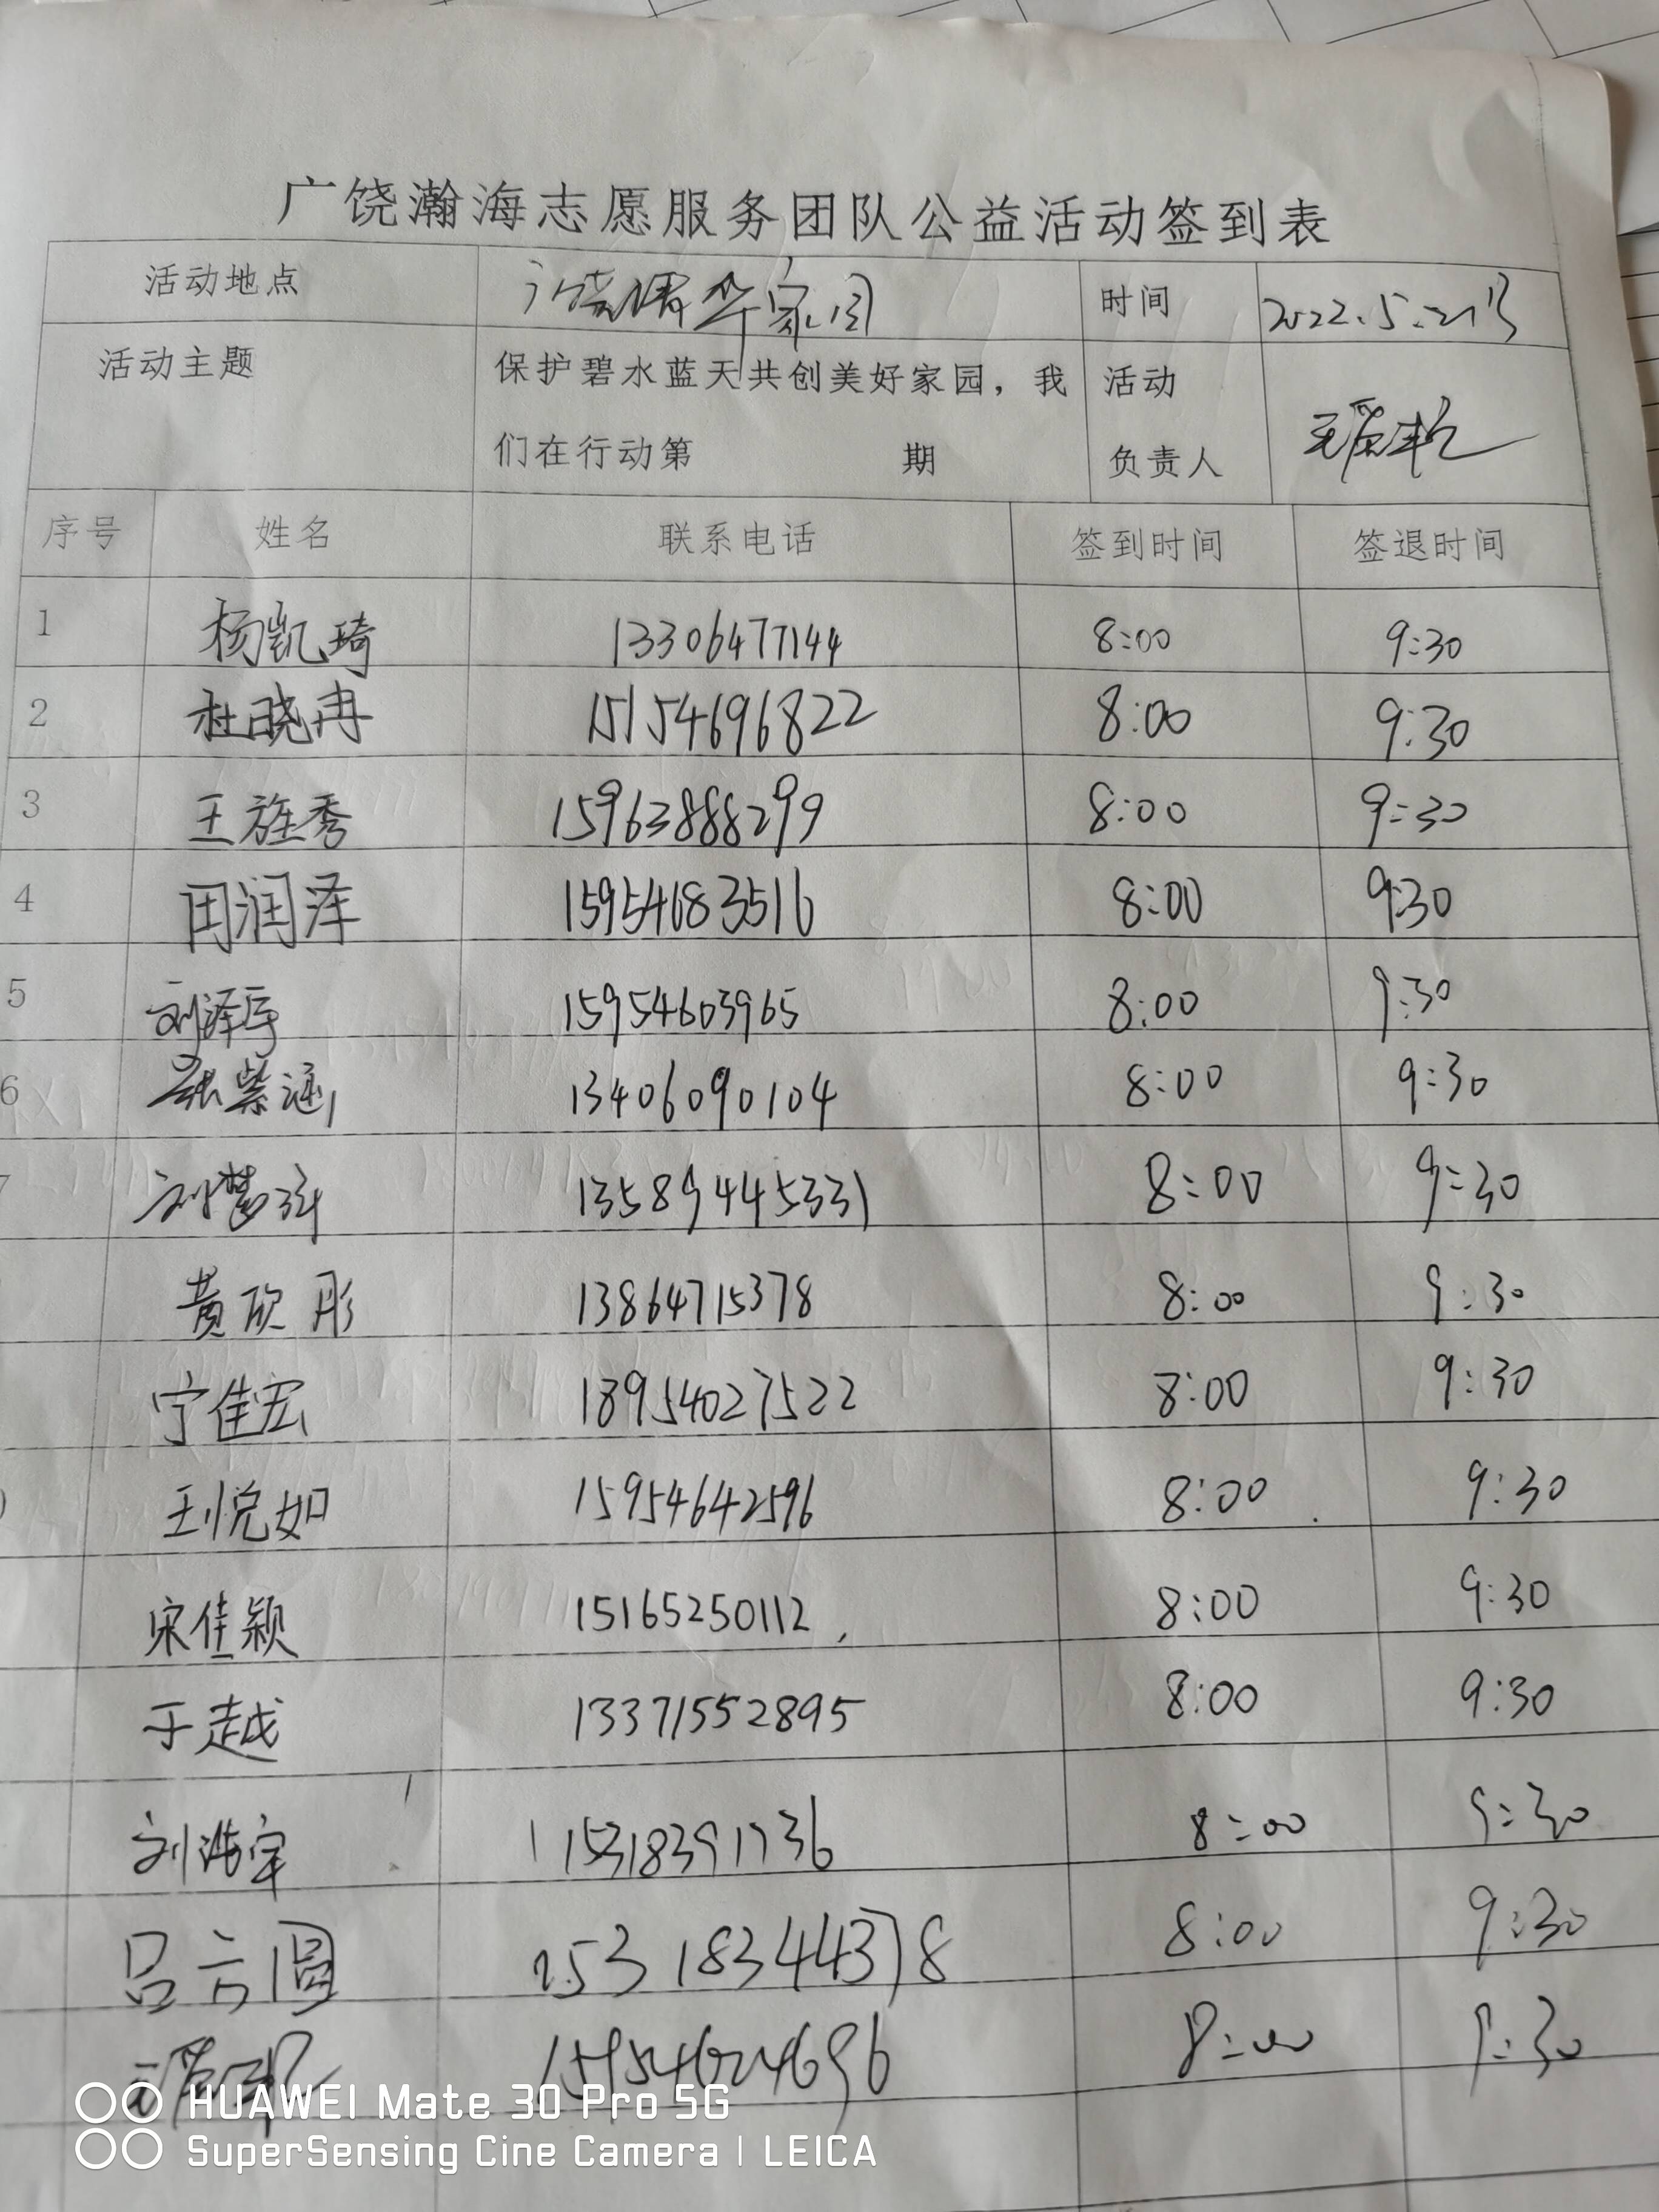 广饶瀚海志愿服务团队公益活动签到表
活动地点 广饶清华家园 时间 2022.5.21号
活动主题 保护碧水蓝天共创美好家园，我 活动
们在行动第 期 负责人
序号 姓名 联系电话 签到时间 签退时间
1 杨凯琦 13306477144 8:00 9:30
2 杜晓冉 15154696822 8:00 9:30
3 王旌秀 15963888299 8:00 9:30
4 田润泽 15954683516 8:00 9:30
5 刘泽宇 15954603965 8:00 9:30
6 张紫涵 13406090104 8:00 9:30
7 刘梦 135894445331 8:00 9:30
黄欣彤 13864715378 8:00 9:30
宁佳宏 18954027522 8:00 9:30
王悦如 15954642596 8:00 9:30
宋佳颖 15165250112 8:00 9:30
于越 13371552895 8:00 9:30
刘浩宇 15318391736 8:00 9:30
吕方圆 15318344378 8:00 9:30
15954624696 8:00 9:30
HUAWEI Mate 30 Pro 5G
SuperSensing Cine Camera | LEICA